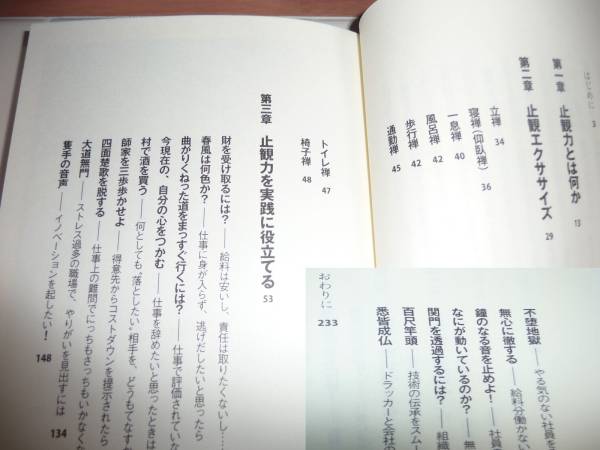 はじめに 3
第一章 止観力とは何か 13
第二章 止観エクササイズ 29
立禅 34
寝禅（仰臥禅） 36
一息禅 40
風呂禅 42
歩行禅 42
通勤禅 45
トイレ禅 47
椅子禅 48
第三章 止観力を実践に役立てる 53
財を受け取るには？――給料は安いし、責任は取りたくないし……
春風は何色か？――仕事に身が入らず、逃げだしたいと思ったら
曲がりくねった道をまっすぐ行くには？――仕事で評価されていな
今現在の、自分の心をつかむ――仕事を辞めたいと思ったときは
村で酒を買う――何としても“落としたい”相手を、どうもてなすか
師家を三歩歩かせよ――得意先からコストダウンを提示されたら
四面楚歌を脱する――仕事上の難問でにっちもさっちもいかなくな
大道無門――ストレス過多の職場で、やりがいを見出すには 134
隻手の音声――イノベーションを起したい！ 148
不堕地獄――やる気のない社員を
無心に徹する――給料分働かない
鐘のなる音を止めよ！――社員
なにが動いているのか？――無
関門を透過するには？――組織
百尺竿頭――技術の伝承をスムー
悉皆成仏――ドラッカーと会社の
おわりに 233